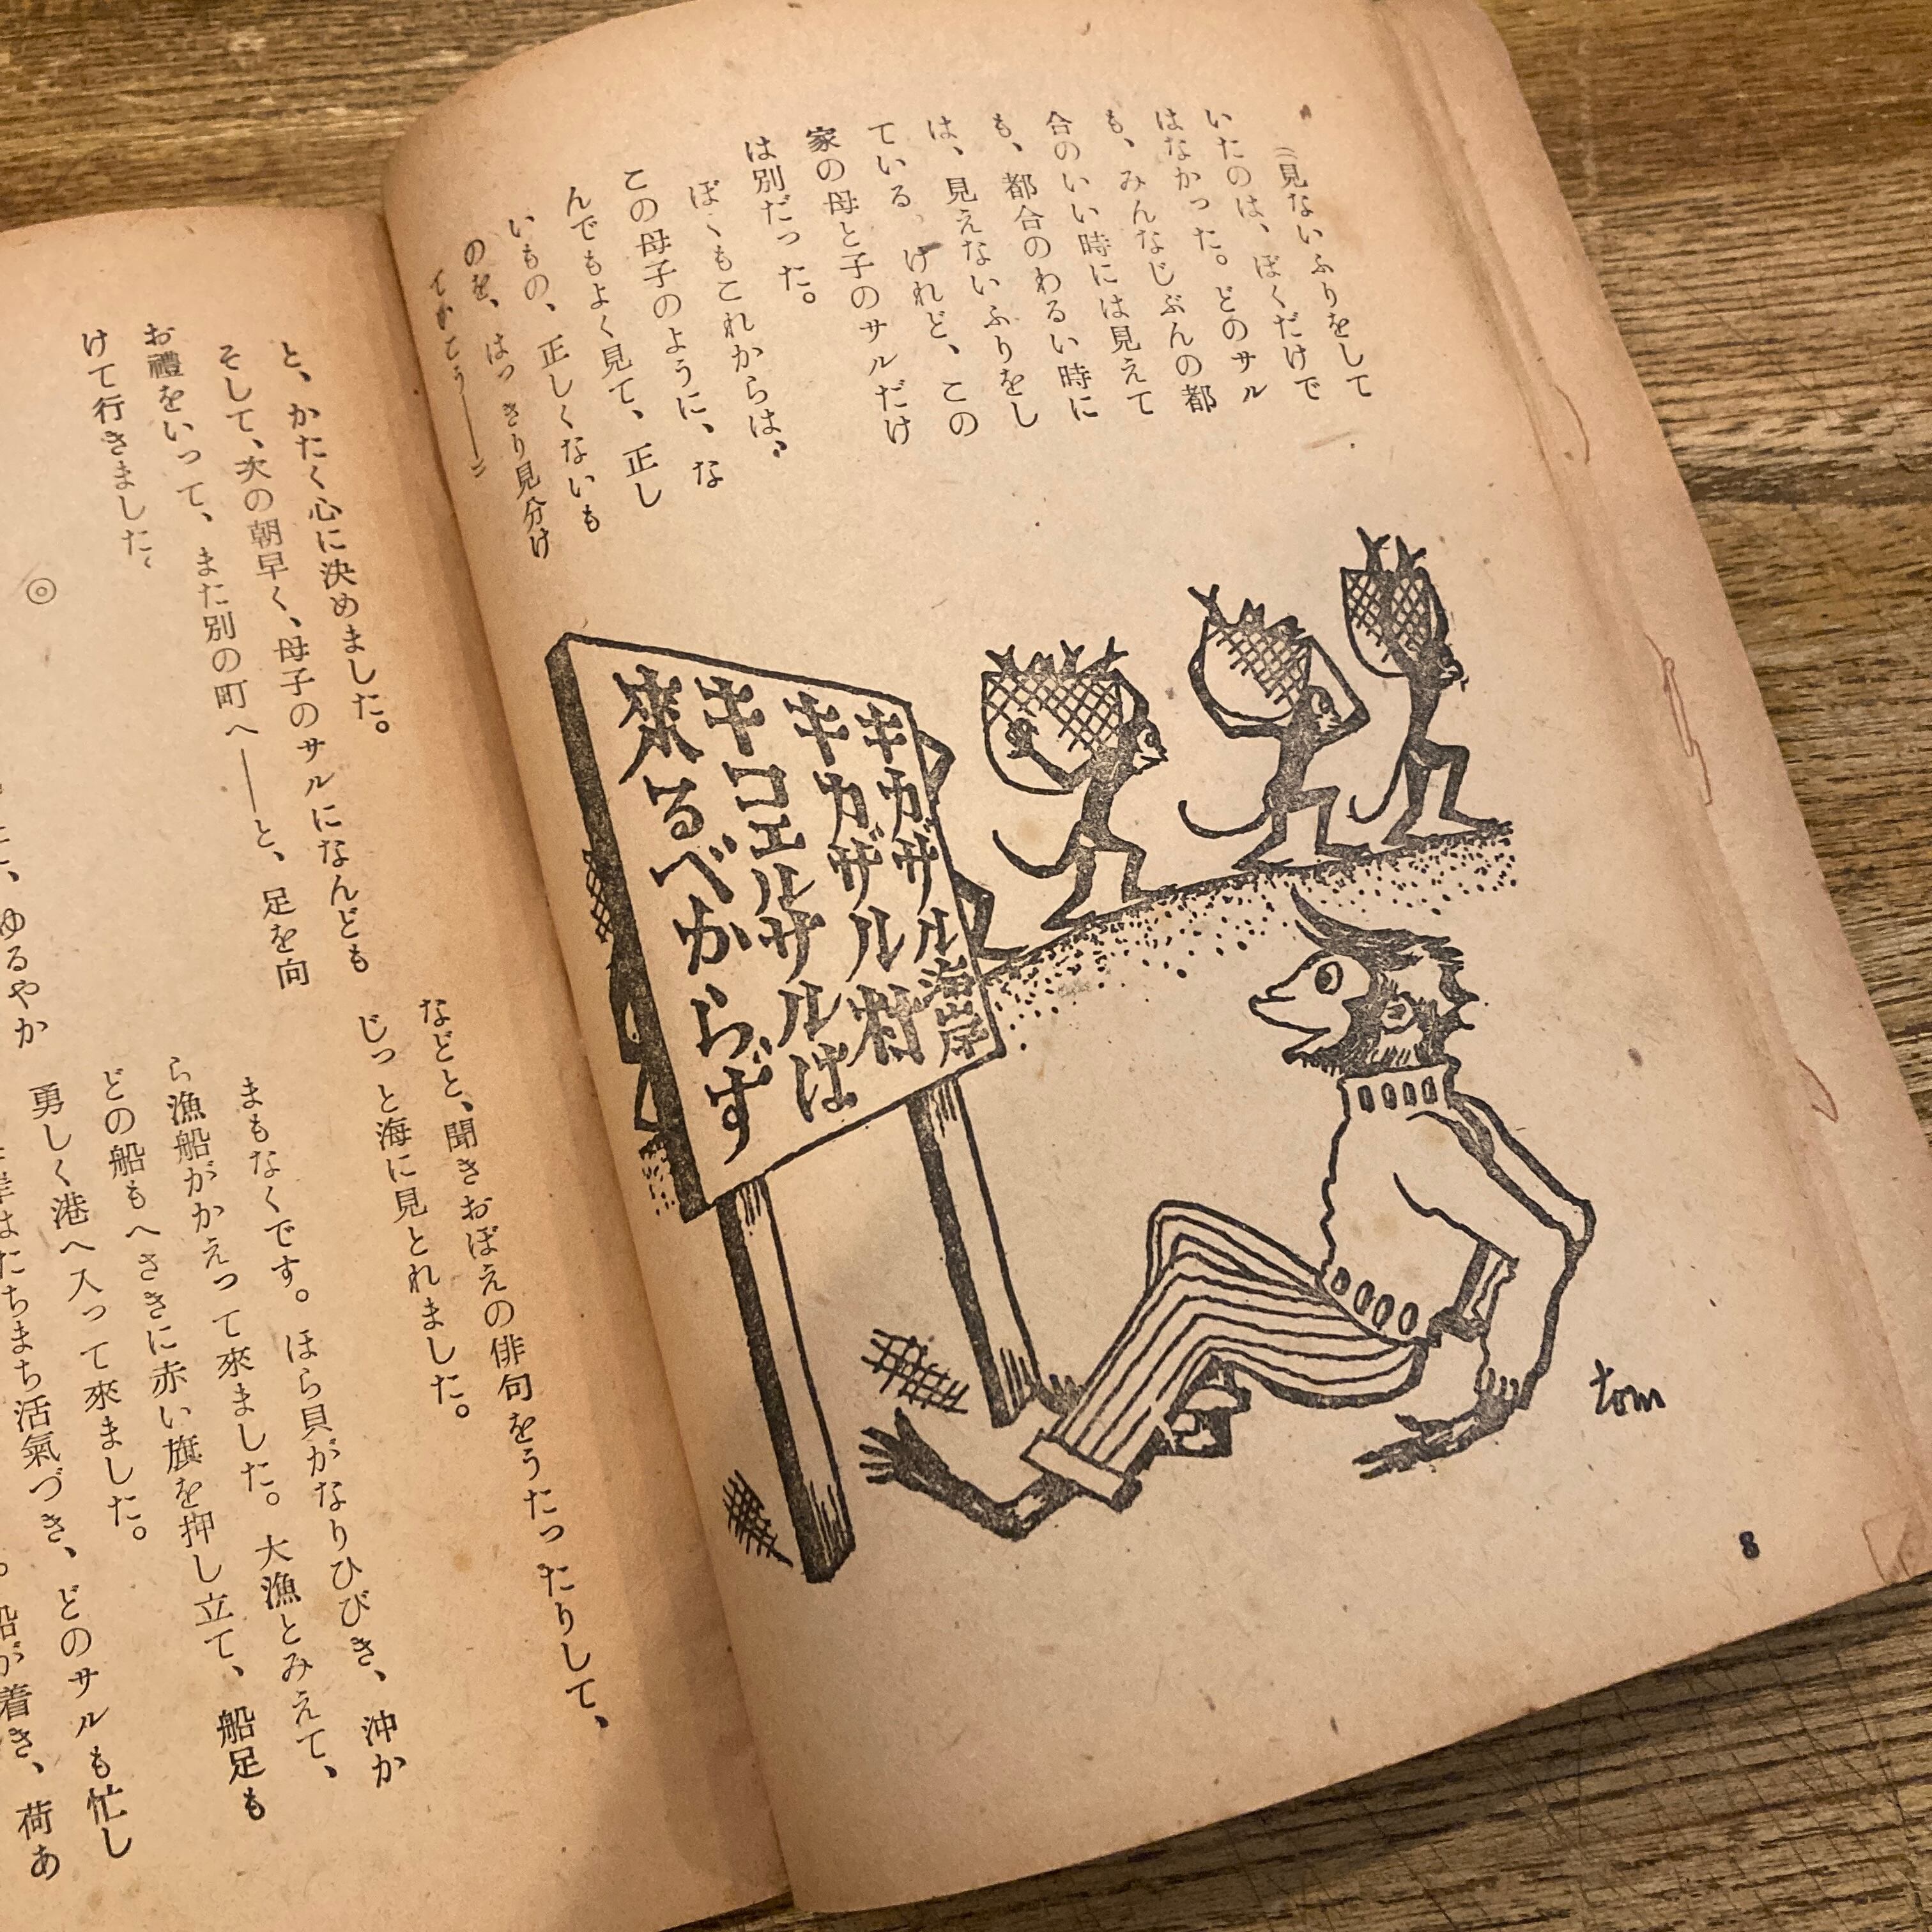 (見ないふりをして
いたのは、ぼくだけで
はなかった。どのサル
も、みんなじぶんの都
合のいい時には見えて
も、都合のわるい時に
は、見えないふりをし
ている。けれど、この
家の母と子のサルだけ
は別だった。
ぼくもこれからは、
この母子のように、な
んでもよく見て、正し
いもの、正しくないも
のを、はっきり見分け
キカザル海岸
キカザル村
キコエルサルは
來るべからず
tom
8
と、かたく心に決めました。
そして、次の朝早く、母子のサルになんども
お禮をいって、また別の町へ――と、足を向
けて行きました。
◎
ゆるやか
などと、聞きおぼえの俳句をうたったりして、
じっと海に見とれました。
まもなくです。ほら貝がなりひびき、沖か
ら漁船がかえって來ました。大漁とみえて、
どの船もへさきに赤い旗を押し立て、船足も
勇しく港へ入って來ました。
はたちまち活氣づき、どのサルも忙し
船が着き、荷あ